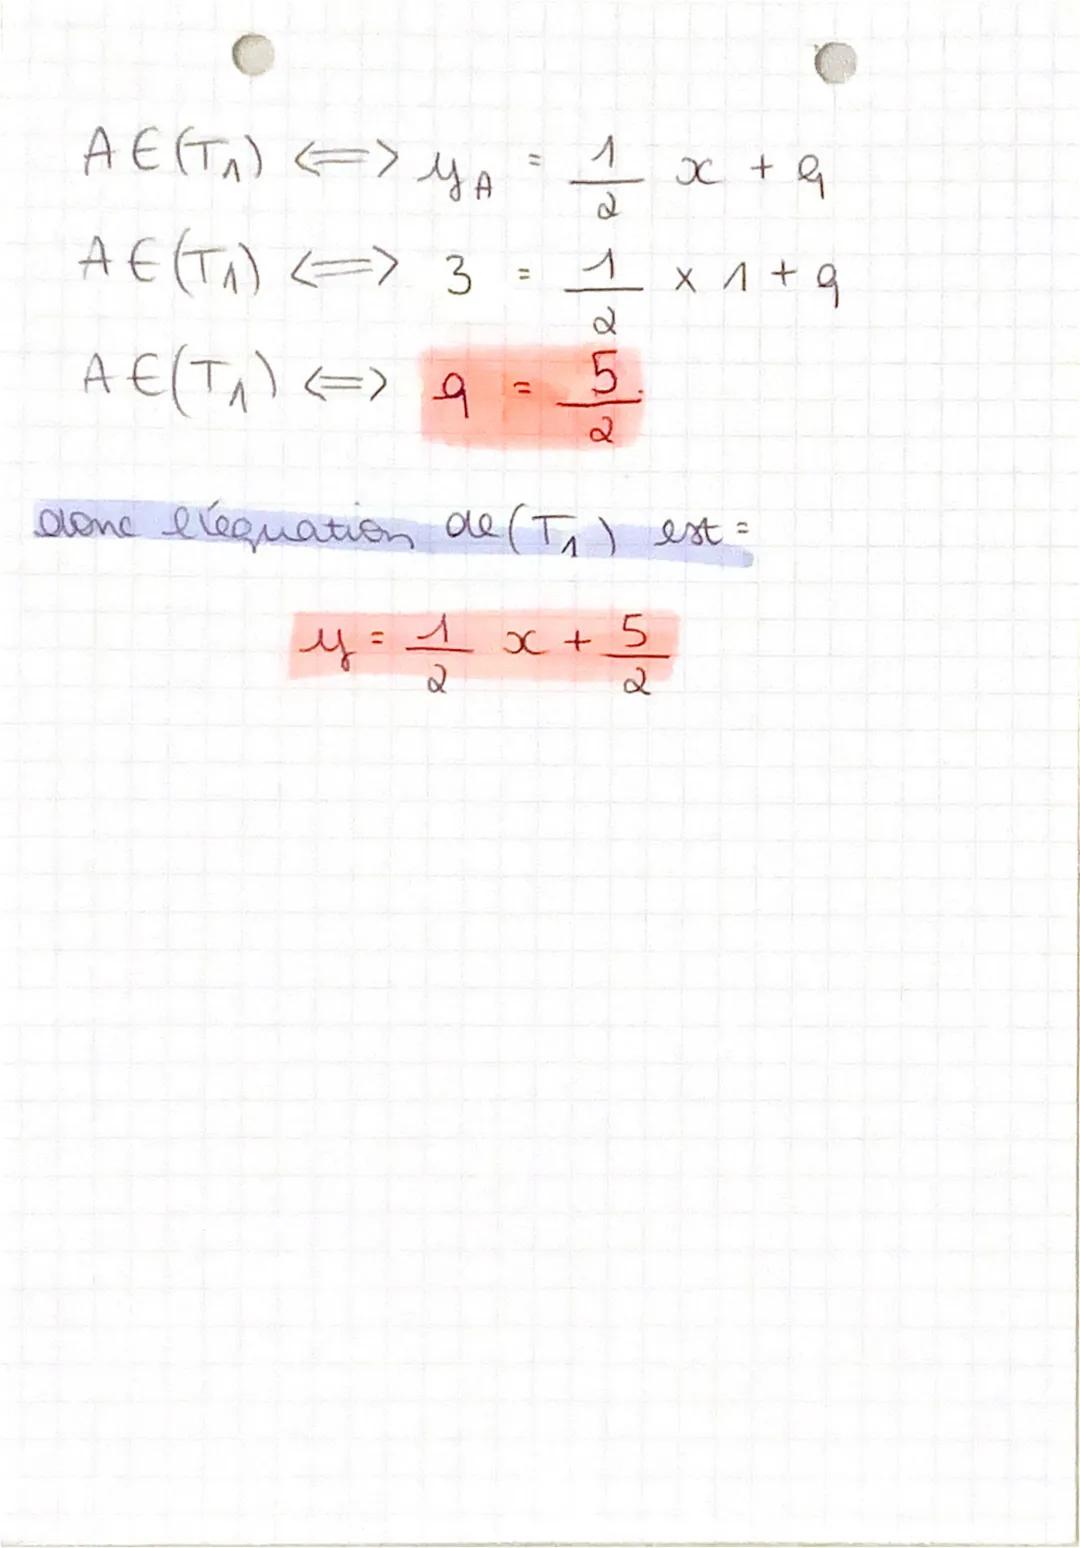 A ∈ (T₁) <=> y_A = 1/2 x + q
A ∈ (T₁) <=> 3 = 1/2 × 1 + q
A ∈ (T₁) <=> q = 5/2.
donc l'équation de (T₁) est =
y = 1/2 x + 5/2